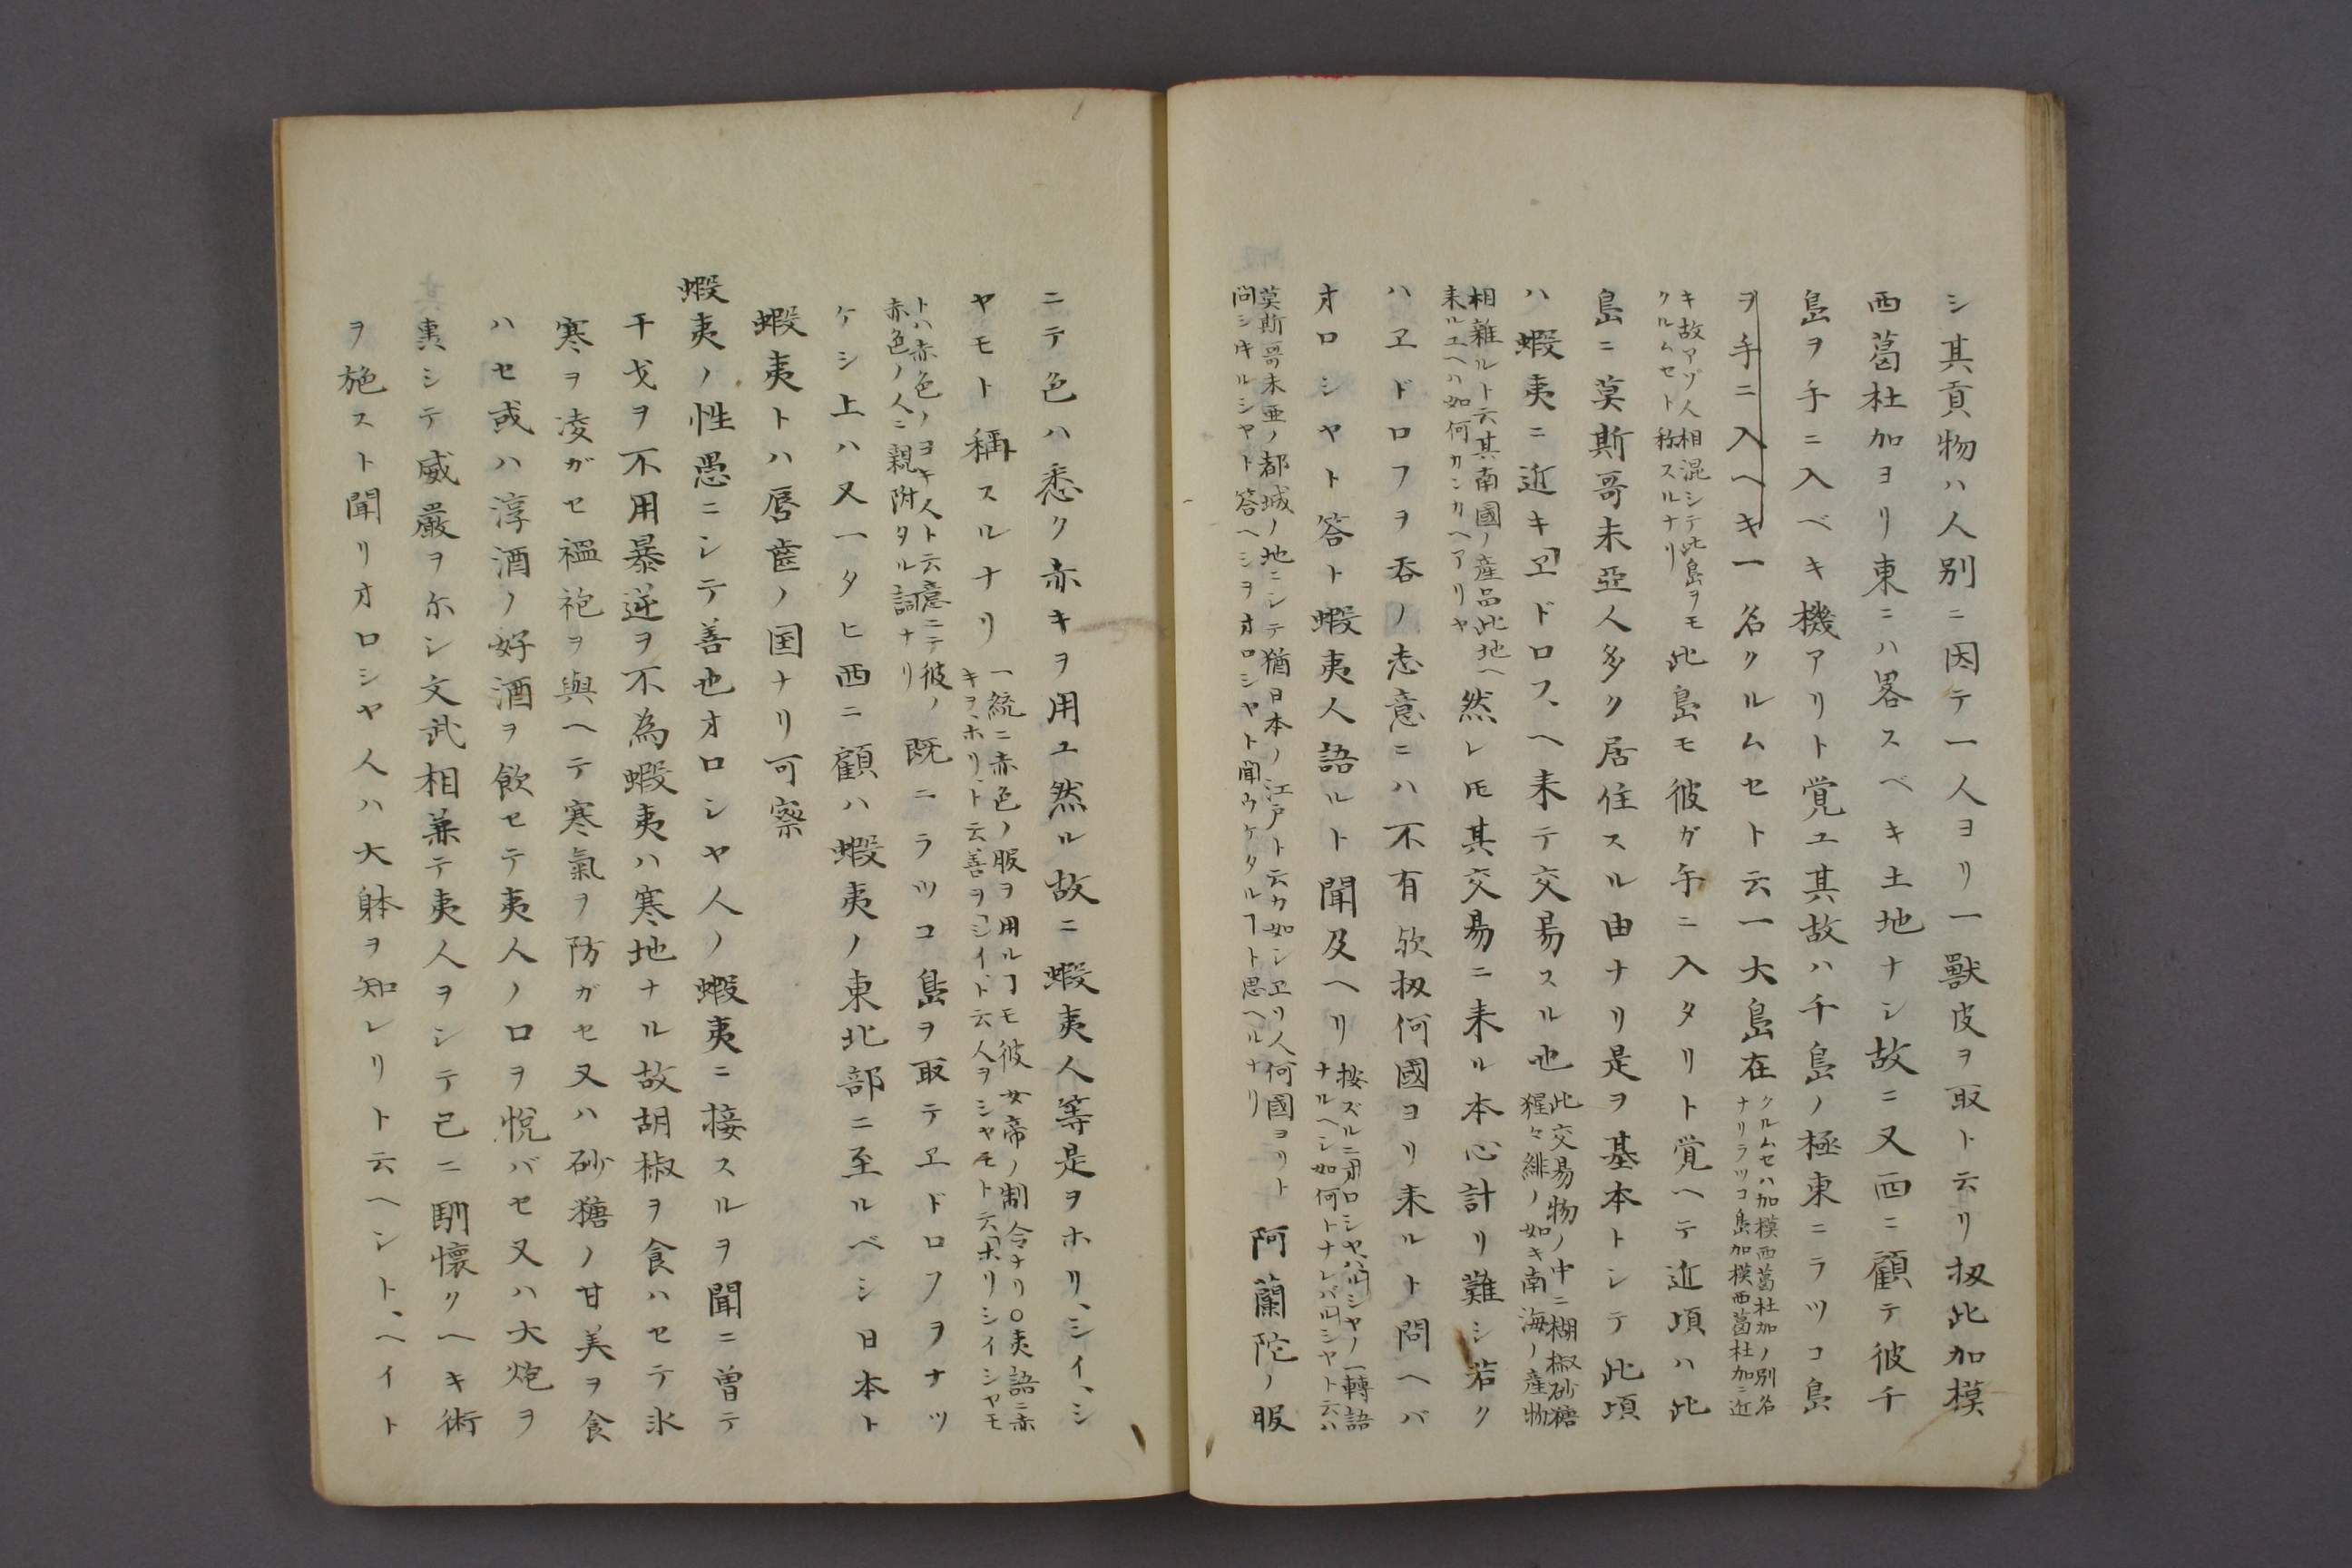 シ其貢物ハ人別ニ因テ一人ヨリ一獣皮ヲ取ト云リ扨此加模
西葛杜加ヨリ東ニハ畧スベキ土地ナシ故ニ又西ニ顧テ彼千
島ヲ手ニ入ベキ機アリト覚ユ其故ハ千島ノ極東ニラツコ島
ヲ手ニ入ヘキ一名クルムセト云一大島在
クルムセハ加模西葛杜加ノ別名
ナリラツコ島加模西葛杜加ニ近
キ故アツ人相混シテ此島ヲモ
クルムセト称スルナリ
此島モ彼ガ手ニ入タリト覚ヘテ近頃ハ此
島ニ莫斯哥未亞人多ク居住スル由ナリ是ヲ基本トシテ此頃
ハ蝦夷ニ近キヱドロフヘ来テ交易スル也
此交易物ノ中ニ胡椒砂糖
猩々緋ノ如キ南海ノ産物
相雑ルト云其南國ノ産品此地ヘ
来ルユヘハ如何カンカヘアリヤ
然レ𪜈其交易ニ来ル本心計リ難シ若ク
ハヱドロフヲ呑ノ志意ニハ不有欤扨何國ヨリ来ルト問ヘバ
オロシヤト答ト蝦夷人語ルト聞及ヘリ
按ズルニオロシヤハルシヤノ一轉語
ナルヘシ如何トナレバルシヤト云ハ
莫斯哥未亜ノ都城ノ地ニシテ猶日本ノ江戸ト云カ如シヱリ人何國ヨリト
問シ時ルシヤト答ヘシヲオロシヤト聞ウケタルヿト思ヘルナリ
阿蘭陀ノ服
ニテ色ハ悉ク赤キヲ用ユ然ル故ニ蝦夷人等是ヲホリ、シイ、シ
ヤモト稱スルナリ
一統ニ赤色ノ服ヲ用ルヿモ彼女帝ノ制令ナリ○夷語ニ赤
キヲ、ホリ、ト云善ヲ、シイ、ト云人ヲシヤモト云ホリシイシヤモ
トハ赤色ノヨキ人ト云意ニテ彼ノ
赤色ノ人ニ親附タル詞ナリ
既ニラツコ島ヲ取テヱドロフヲナツ
ケシ上ハ又一タヒ西ニ顧ハ蝦夷ノ東北部ニ至ルベシ日本ト
蝦夷トハ唇齒ノ国ナリ可察
蝦夷ノ性愚ニシテ善也オロシヤ人ノ蝦夷ニ接スルヲ聞ニ曽テ
干戈ヲ不用暴逆ヲ不為蝦夷ハ寒地ナル故胡椒ヲ食ハセテ氷
寒ヲ凌ガセ褞袍ヲ與ヘテ寒氣ヲ防ガセ又ハ砂糖ノ甘美ヲ食
ハセ或ハ淳酒ノ好酒ヲ飲セテ夷人ノ口ヲ悦バセ又ハ大炮ヲ
裏シテ威嚴ヲ尓シ文武相兼テ夷人ヲシテ已ニ馴懷クヘキ術
ヲ施スト聞リオロシヤ人ハ大躰ヲ知レリト云ヘシト、ヘイト